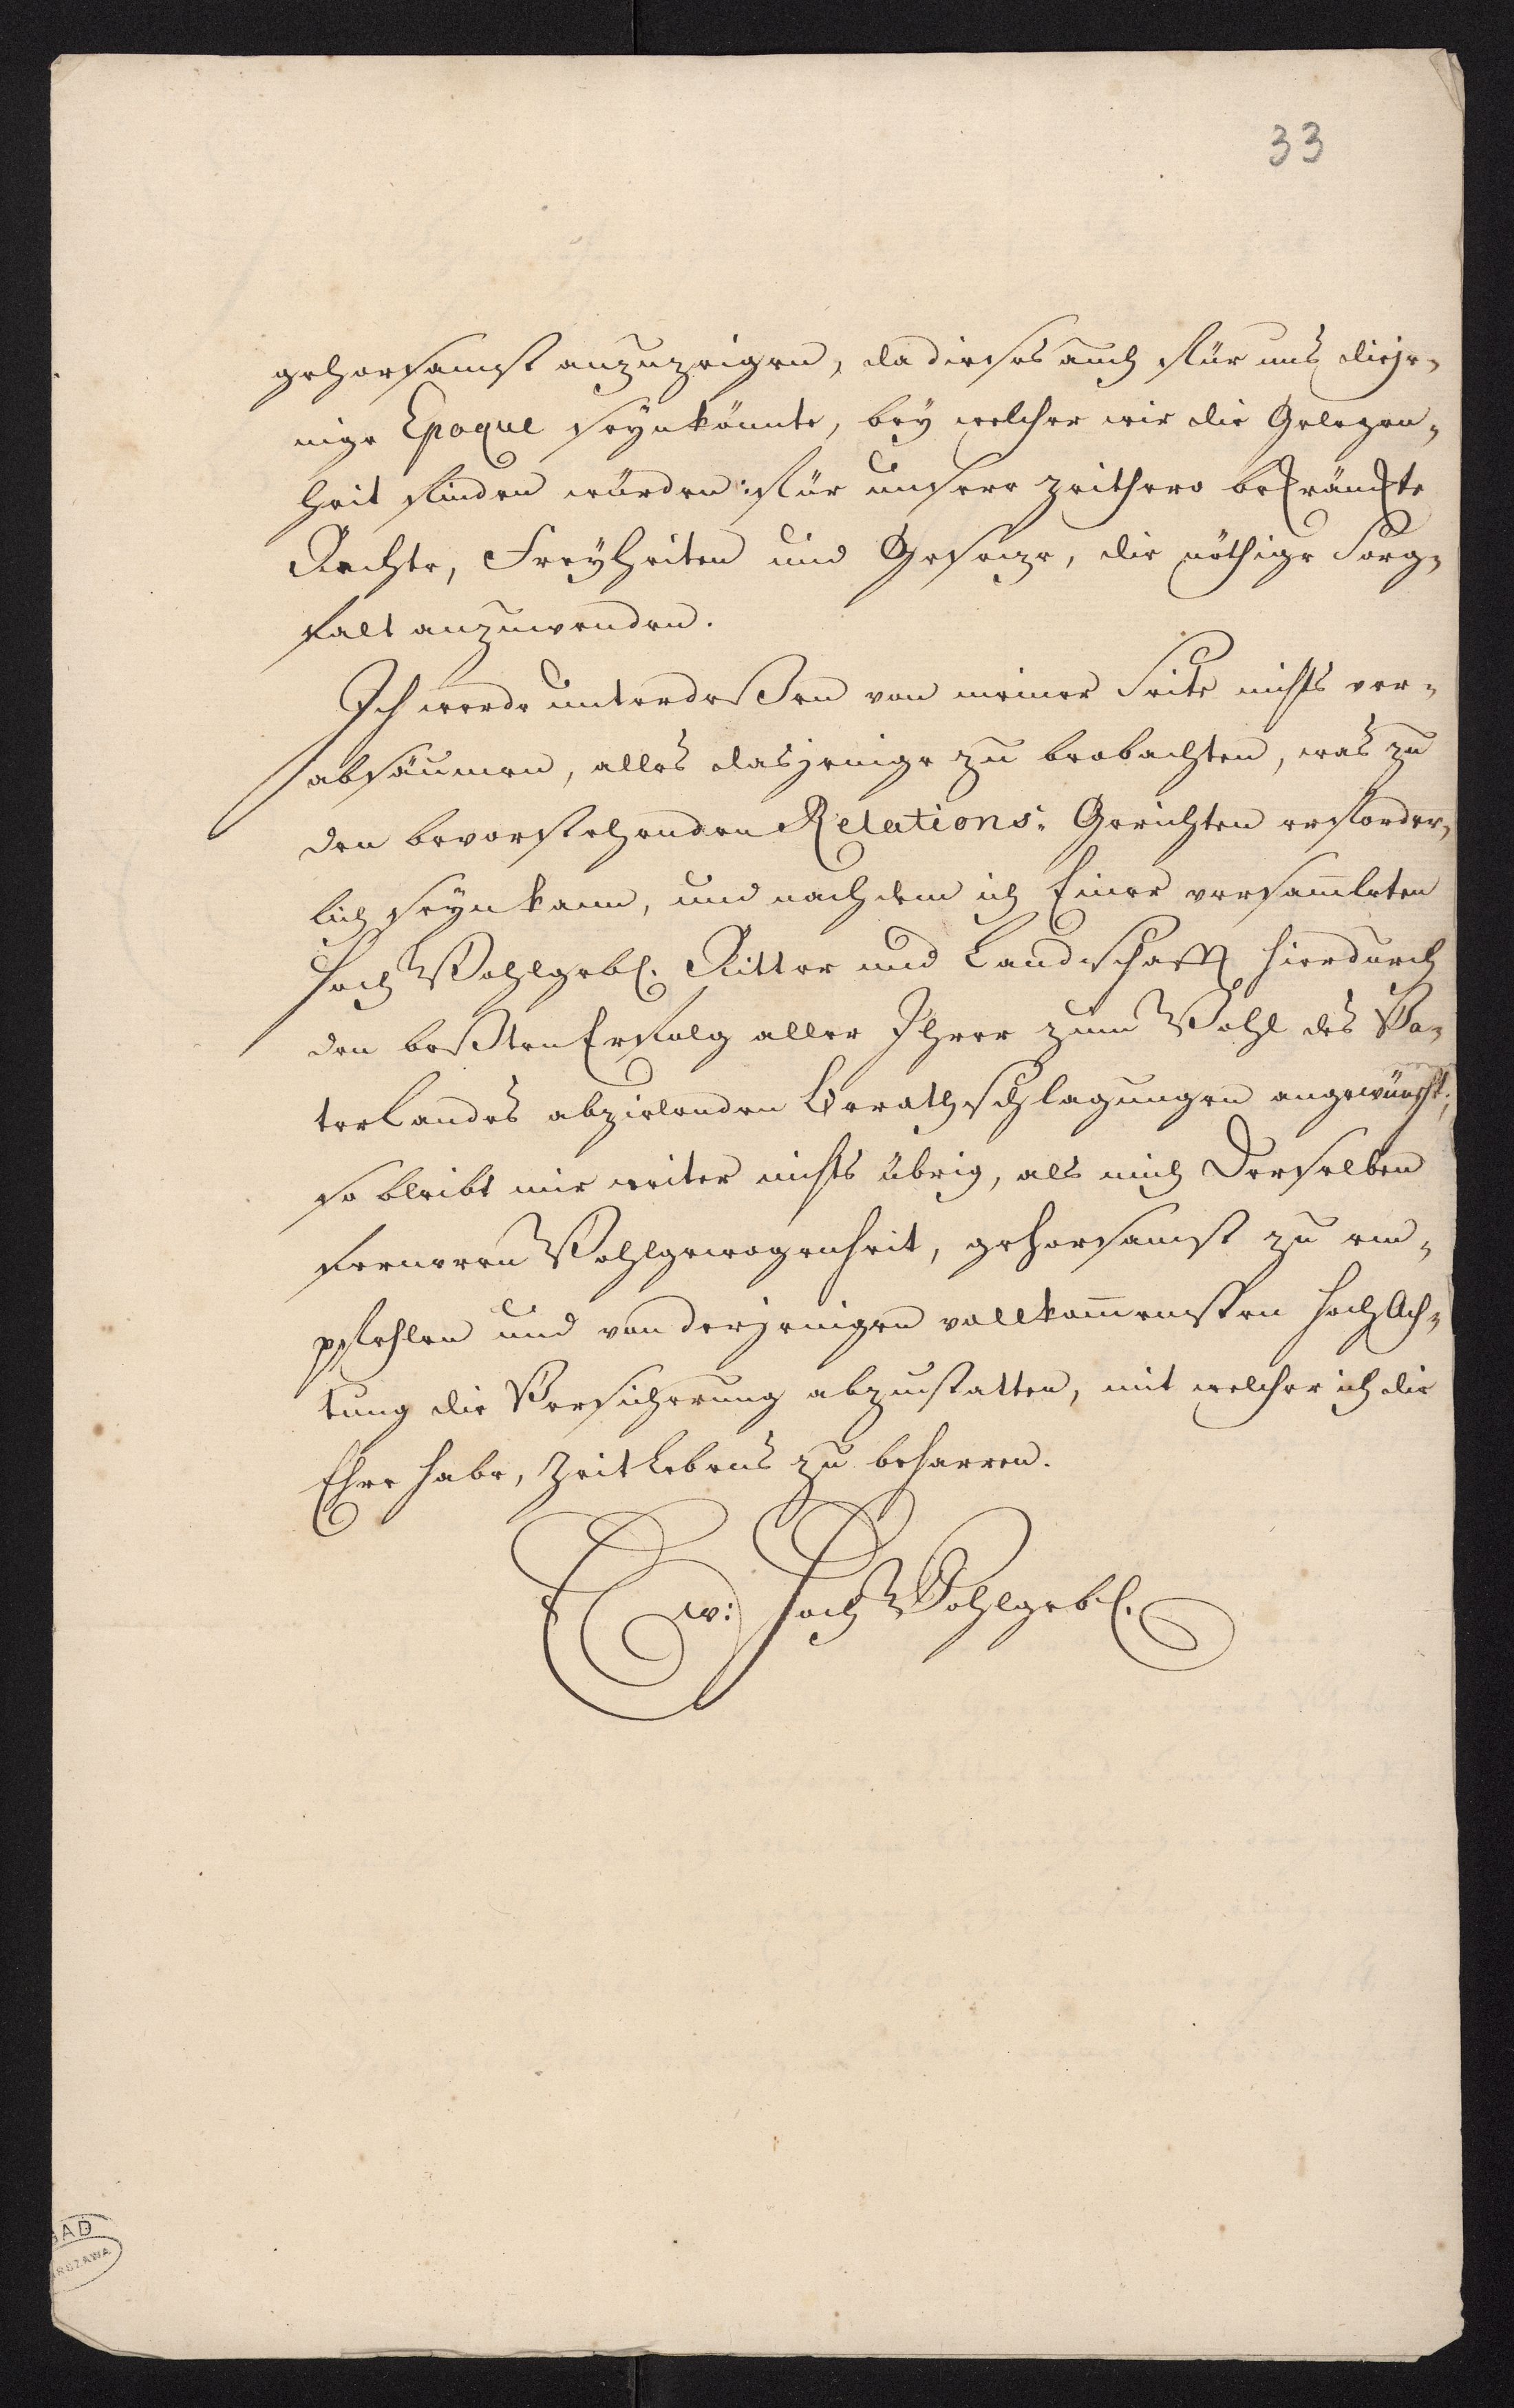 33
gehorsamst anzuzeigen, da dieses auch für uns dieje¬
nige Epoque seyn könnte, bey welcher wir die Gelegen¬
heit finden würden: für unsere zeithero bekränckte
Rechte, Freyheiten und Gesetze, die nöthige Sorg¬
falt anzuwenden.
Ich werde unterdeßen von meiner Seite nichts ver¬
absäumen, alles dasjenige zu beobachten, was zu
den bevorstehenden Relations-Gerichten erforder¬
lich seyn kann, und nachdem ich Einer versam̅leten
Hoch Wohlgebl. Ritter und Landschafft hierdurch
den beßten Erfolg aller Ihrer zum Wohl des Va¬
terlandes abzielenden Berathschlagungen angewünscht;
so bleibt mir weiter nichts übrig, als mich Derselben
ferneren Wohlgewogenheit, gehorsamst zu em¬
pfehlen und von derjenigen vollkom̅ensten HochAch¬
tung die Versicherung abzustatten, mit welcher ich die
Ehre habe, Zeitlebens zu beharren.
Ew: Hoch Wohlgebl.
AD
WARSZAWA